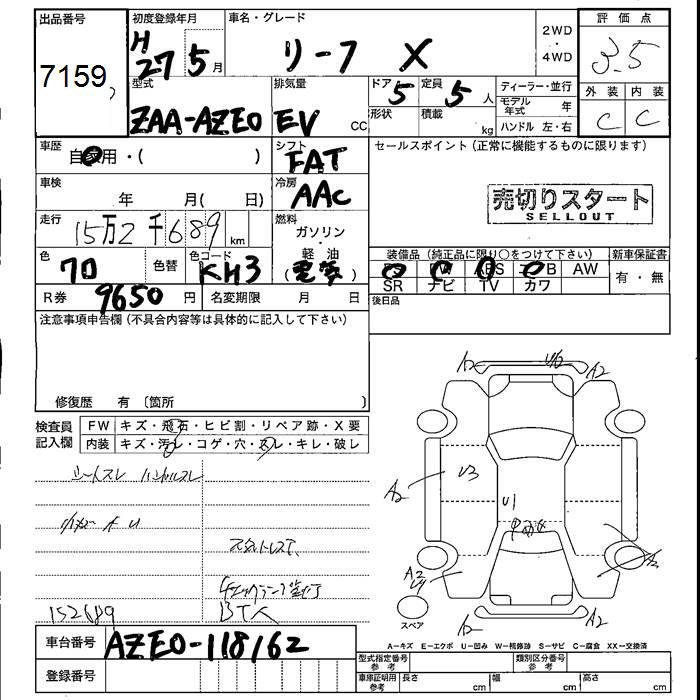 出品番号
7159
初度登録年月
H27 5月
車名・グレード
リーフ X
2WD・4WD
評価点
3.5
外装 内装
C C
型式
ZAA-AZE0
排気量
EV CC
ドア 5
形状
定員 5人
積載 kg
ディーラー・並行
モデル年式 年
ハンドル 左・右
車歴
自家用・( )
シフト
FAT
セールスポイント(正常に機能するものに限ります)
売切りスタート
SELLOUT
車検
年 月( 日)
冷房
AAC
走行
15万2千689km
燃料
ガソリン・軽油
(電気)
色
70
色替
色コード
KH3
装備品(純正品に限り○をつけて下さい)
新車保証書
ABS AW
SR ナビ TV カワ
有・無
R券 9650円
名変期限 月 日
後日品
注意事項申告欄(不具合内容等は具体的に記入して下さい)
修復歴 有〔箇所 〕
検査員記入欄
FW キズ・飛石・ヒビ割・リペア跡・X要
内装 キズ・汚レ・コゲ・穴・スレ・キレ・破レ
シートスレ ハンドルスレ
チェックランプ点灯
152689
BTK
A2 U2 A2
U3
A2
U1
A2
A2
A2 A2
スペア
A=キズ E=エクボ U=凹み W=補修跡 S=サビ C=腐食 XX=交換済
車台番号 AZE0-118162
登録番号
型式指定番号 参考
類別区分番号 参考
車庫証明用 参考
長さ cm 幅 cm 高さ cm